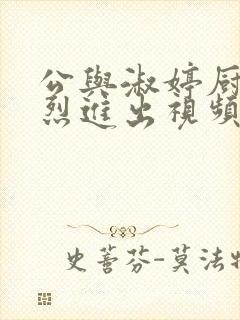 公與淑婷厨
烈進出視頻
史蒈芬-莫法特